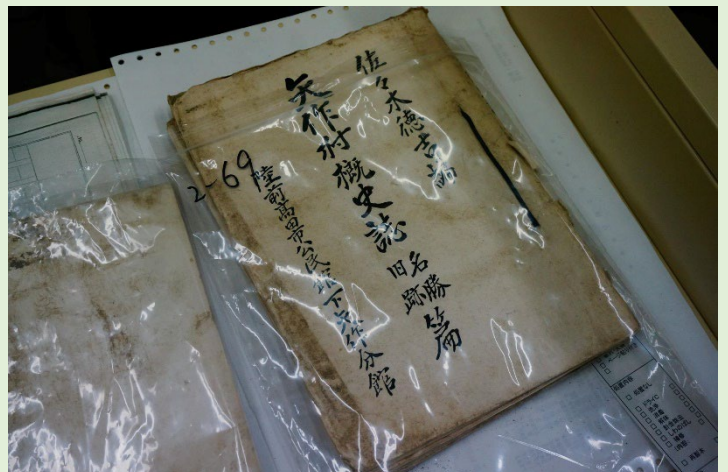 佐々木德吉誌
矢作村概史誌 名勝旧跡篇
陸前高田市公民館下矢作分館
2-69